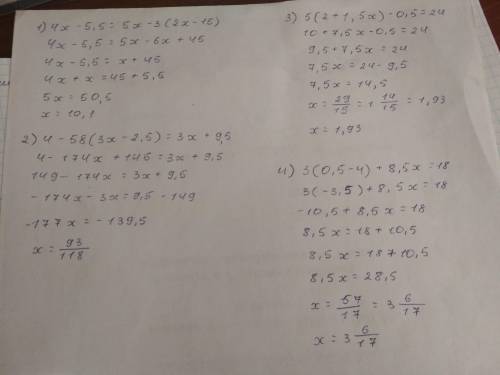 1) 4x - 5,5 = 5x - 3(2x - 15)
4x - 5,5 = 5x - 6x + 45
4x - 5,5 = x + 45
4x + x = 45 + 5,5
5x = 50,5
x = 10,1
2) 4 - 58(3x - 2,5) = 3x + 9,5
4 - 174x + 145 = 3x + 9,5
149 - 174x = 3x + 9,5
-174x - 3x = 9,5 - 149
-177x = -139,5
x = 93/118
3) 5(2 + 1,5x) - 0,5 = 24
10 + 7,5x - 0,5 = 24
9,5 + 7,5x = 24
7,5x = 24 - 9,5
7,5x = 14,5
x = 29/15 = 1 14/15 = 1,93
x = 1,93
4) 3(0,5 - 4) + 8,5x = 18
3(-3,5) + 8,5x = 18
-10,5 + 8,5x = 18
8,5x = 18 + 10,5
8,5x = 18 + 10,5
8,5x = 28,5
x = 57/17 = 3 6/17
x = 3 6/17